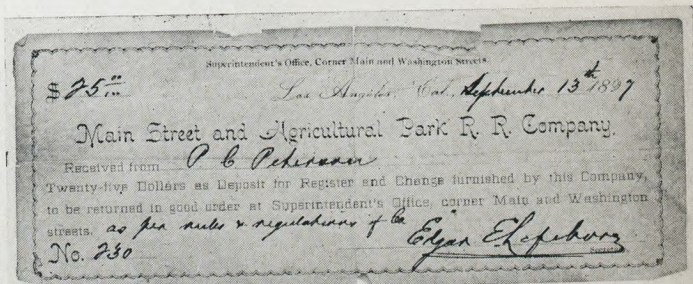 Superintendent's Office, Corner Main and Washington Streets.
$25.00 Los Angeles, Cal., September 13th 1897
Main Street and Agricultural Park R. R. Company.
Received from P C Peterson
Twenty-five Dollars as Deposit for Register and Change furnished by this Company,
to be returned in good order at Superintendent's Office, corner Main and Washington
streets. as per rules & regulations of Co
No. 230 Edgar E